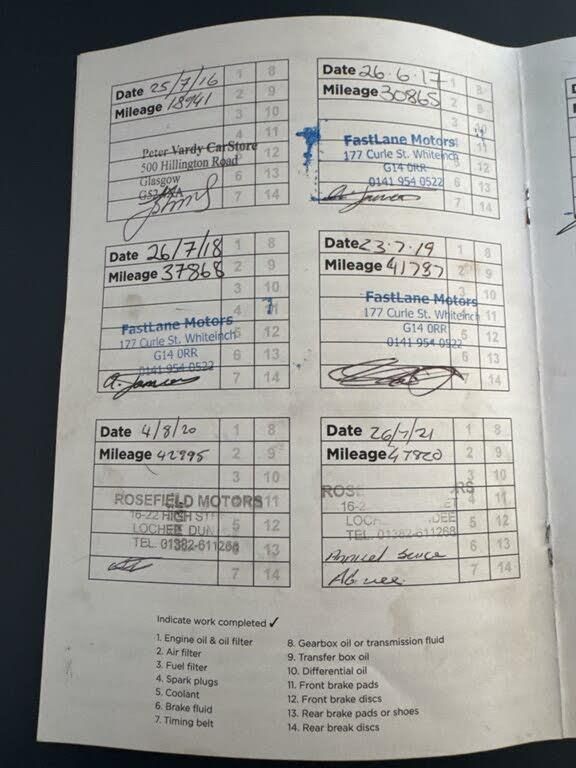 Date 25/7/16 1 8
Mileage 18941 2 9
3 10
4 11
Peter Vardy CarStore 12
500 Hillington Road
Glasgow 6 13
7 14
Date 26.6.17 1 8
Mileage 30865 2 9
3 10
FastLane Motors 11
177 Curle St. Whiteinch 12
G14 0RR
0141 954 0522 6 13
7 14
Date 26/7/18 1 8
Mileage 37868 2 9
3 10
4 11
FastLane Motors
177 Curle St. Whiteinch 5 12
G14 0RR 6 13
0141 954 0522
7 14
Date 23.7.19 1 8
Mileage 41787 2 9
3 10
FastLane Motors
177 Curle St. Whiteinch 11
G14 0RR 5 12
0141 954 0522
6 13
7 14
Date 4/8/20 1 8
Mileage 42995 2 9
3 10
ROSEFIELD MOTORS 11
16-22 HIGH ST
LOCHEE DUN 5 12
TEL. 01382-611268 13
7 14
Date 26/7/21 1 8
Mileage 47820 2 9
3 10
4 11
5 12
TEL. 01382-611268
Annual 6 13
7 14
Indicate work completed ✓
1. Engine oil & oil filter
2. Air filter
3. Fuel filter
4. Spark plugs
5. Coolant
6. Brake fluid
7. Timing belt
8. Gearbox oil or transmission fluid
9. Transfer box oil
10. Differential oil
11. Front brake pads
12. Front brake discs
13. Rear brake pads or shoes
14. Rear break discs